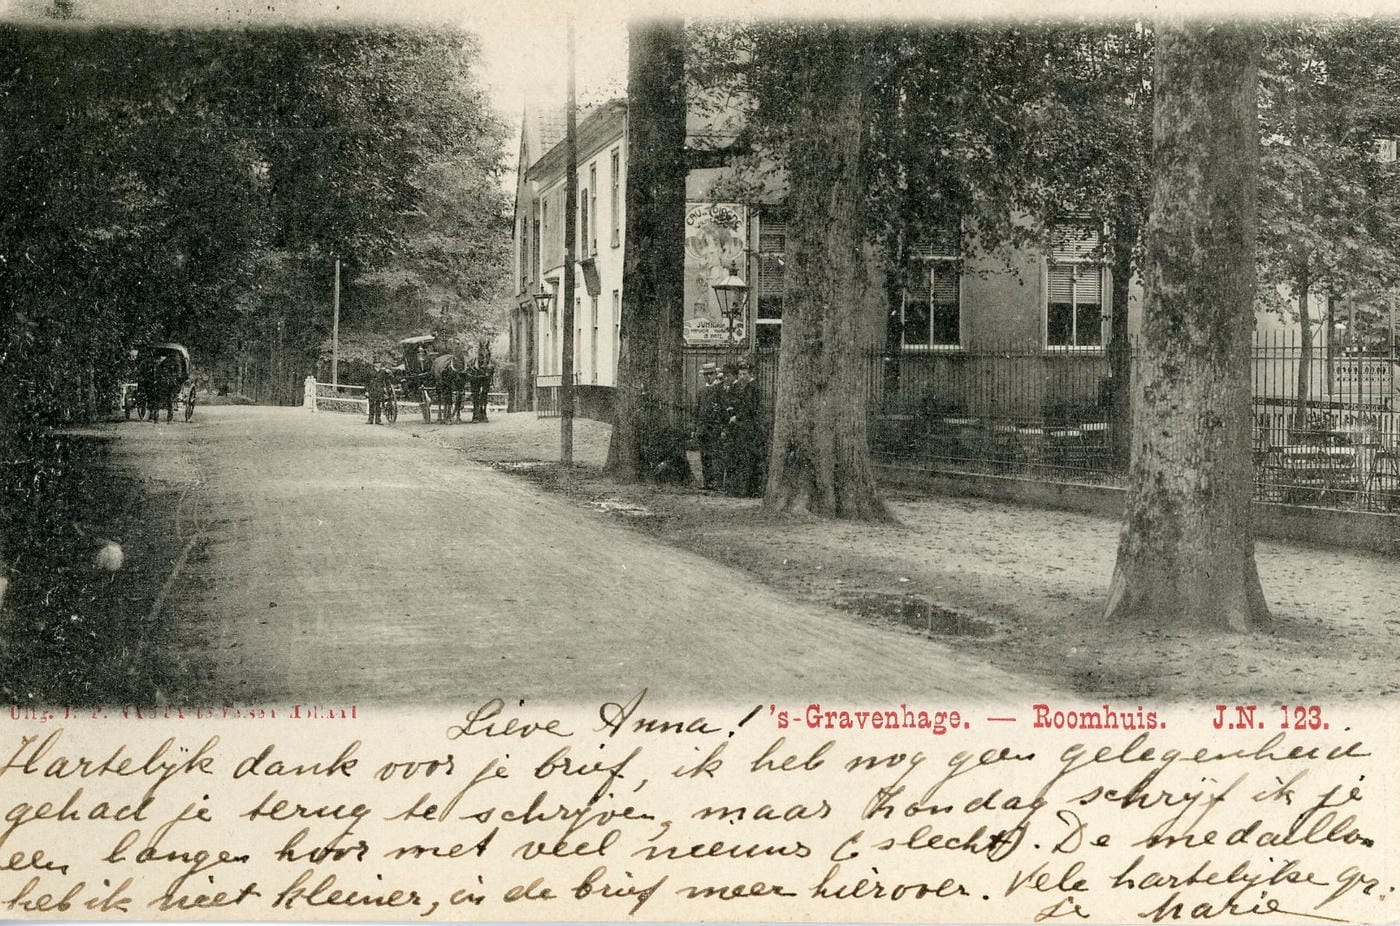 Uitg.
Lieve Anna! 's-Gravenhage. — Roomhuis. J.N. 123.
Hartelijk dank voor je brief, ik heb nog geen gelegenheid
gehad je terug te schrijven, maar Zondag schrijf ik je
een langen hoor met veel nieuws (slecht). De medaillon
heb ik niet kleiner, in de brief meer hierover. Vele hartelijke gr.
je Marie